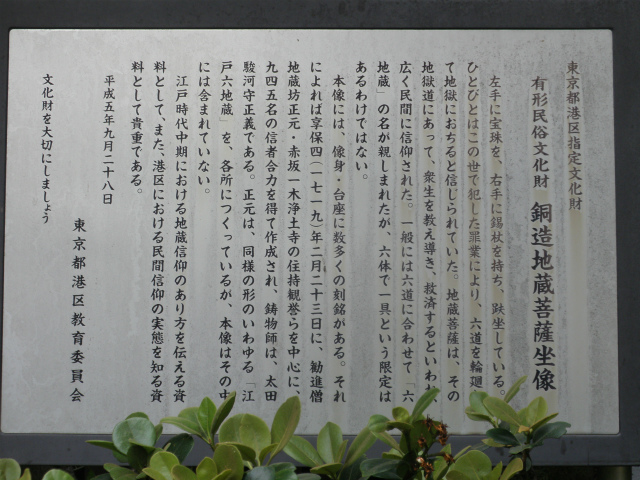 東京都港区指定文化財
有形民俗文化財 銅造地蔵菩薩坐像
左手に宝珠を、右手に錫杖を持ち、趺坐している。
ひとびとはこの世で犯した罪業により、六道を輪廻
て地獄におちると信じられていた。地蔵菩薩は、その
地獄道にあって、衆生を教え導き、救済するといわれ、
広く民間に信仰された。一般には六道に合わせて「六
地蔵」の名が親しまれたが、六体で一具という限定は
あるわけではない。
本像には、像身・台座に数多くの刻銘がある。それ
によれば享保四(一七一九)年二月二十三日に、勧進僧
地蔵坊正元・赤坂一木浄土寺の住持観誉らを中心に、
九四五名の信者合力を得て作成され、鋳物師は、太田
駿河守正義である。正元は、同様の形のいわゆる「江
戸六地蔵」を、各所につくっているが、本像はその中
には含まれていない。
江戸時代中期における地蔵信仰のあり方を伝える資
料として、また、港区における民間信仰の実態を知る資
料として貴重である。
平成五年九月二十八日
東京都港区教育委員会
文化財を大切にしましょう